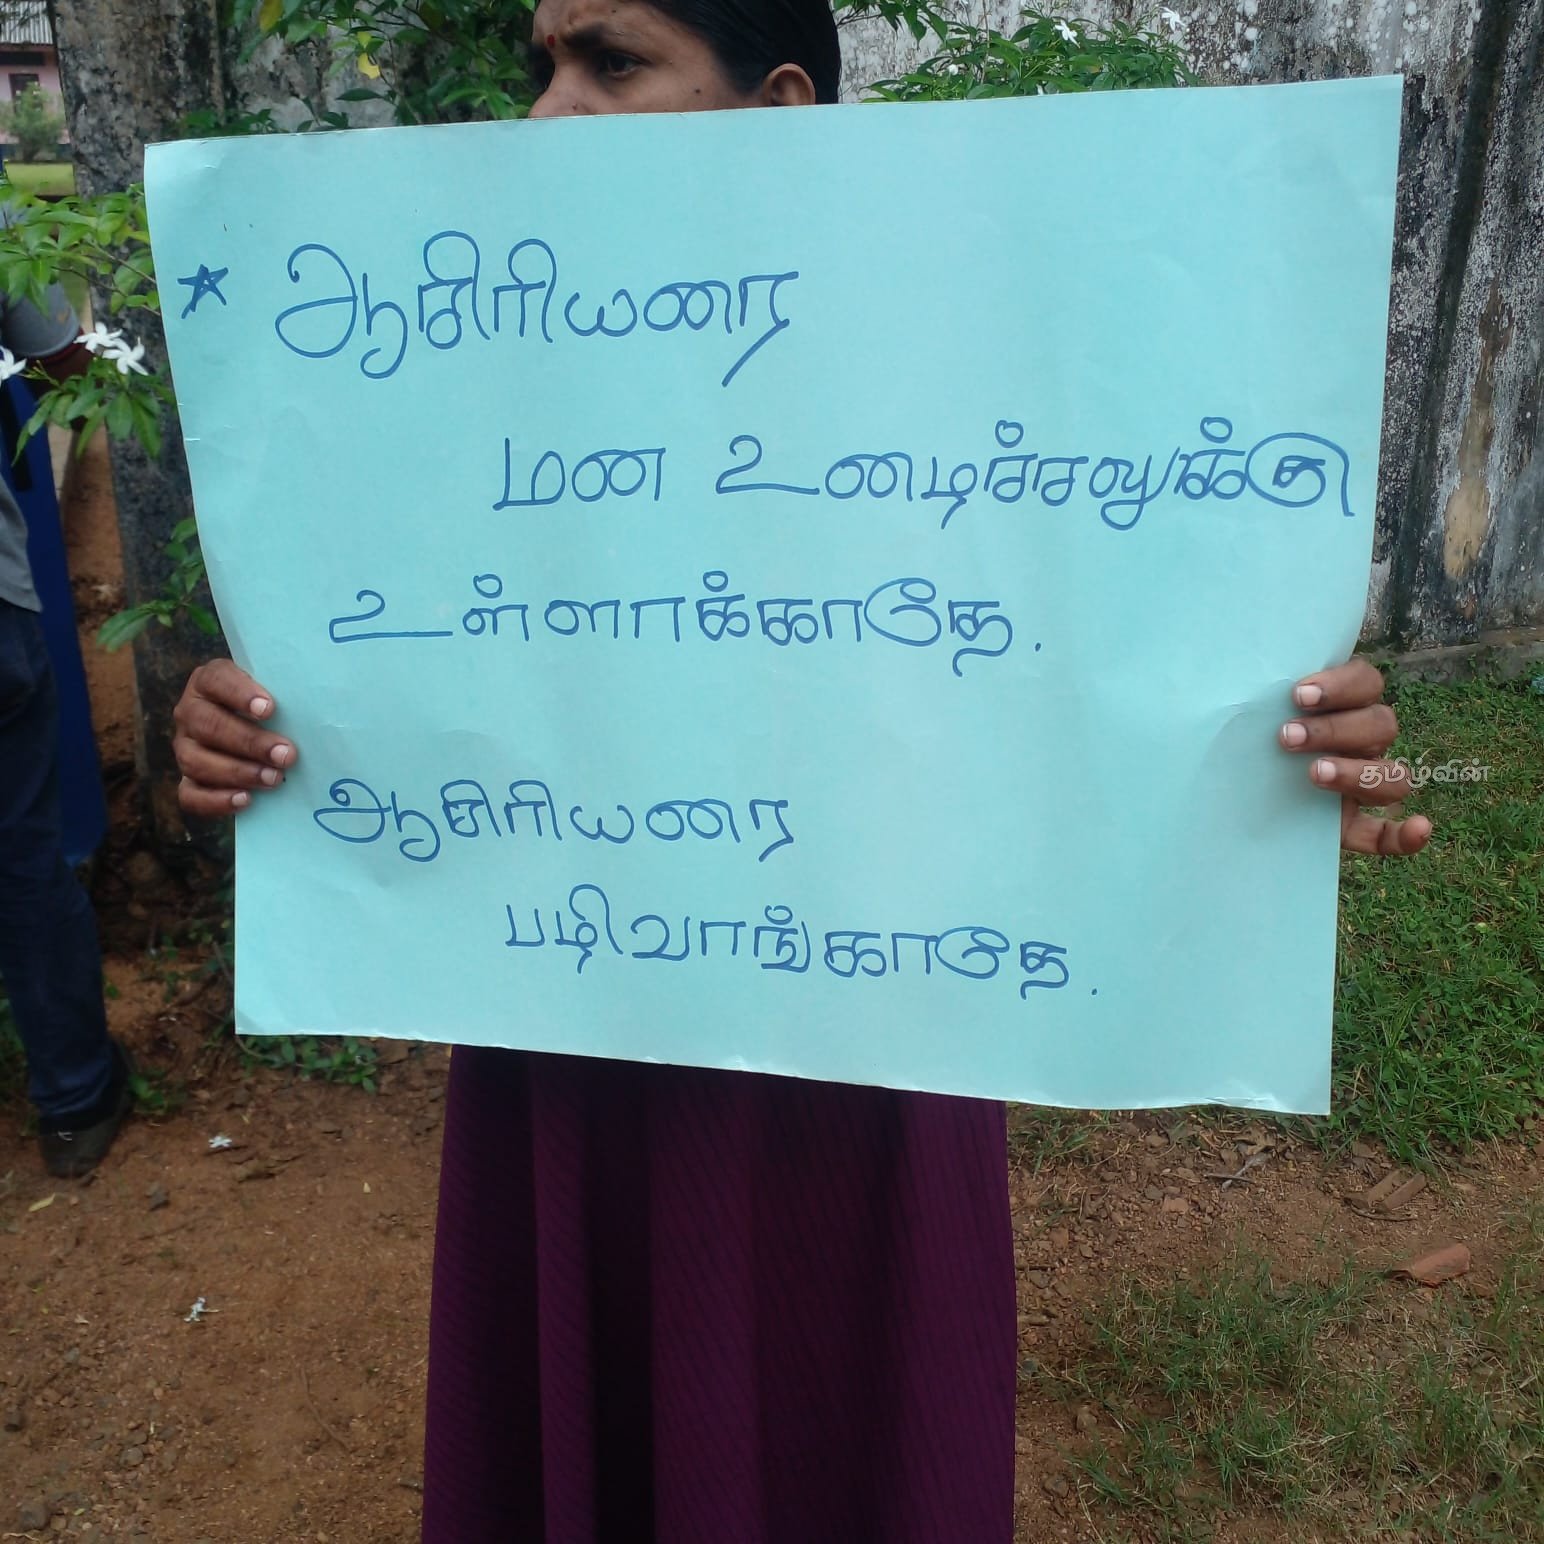 ★ ஆசிரியரை
மன உளைச்சலுக்கு
உள்ளாக்காதே.
ஆசிரியரை
பழிவாங்காதே.
தமிழ்வின்